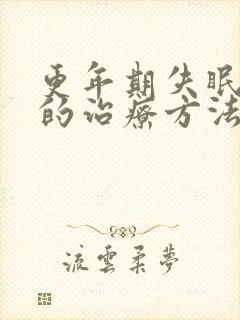 更年期失眠
的治療方法
流雲柔夢